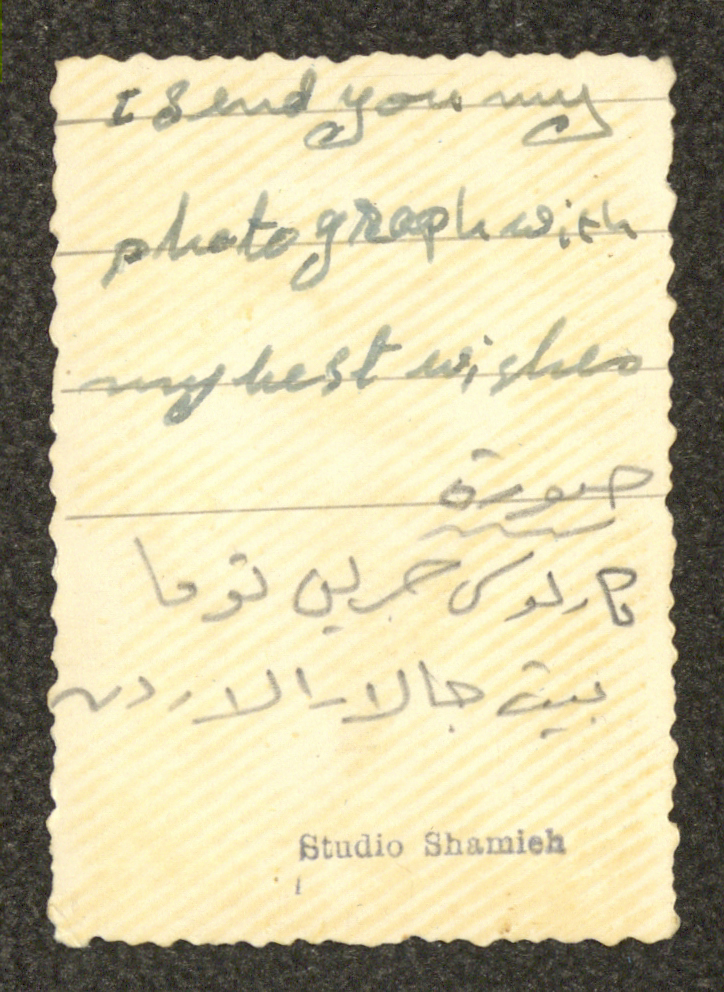 I send you my
photograph with
my best wishes
صورة
كارلوس جريس توما
بيت جالا - الاردن
Studio Shamieh